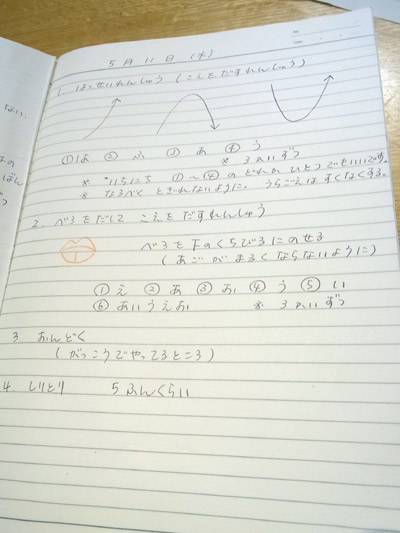 5月11日 (水)
1. はっせいれんしゅう (こえをだすれんしゅう)
①は ②ふ ③あ ④う
※ 3かいずつ
※ いちにち ①〜④のどれかひとつでいいです。
※ なるべくとぎれないように。 うらごえはすくなくする。
2. べろをだして こえをだすれんしゅう
べろを下のくちびるにのせる
(あごがまるくならないように)
①え ②あ ③お ④う ⑤い
⑥あいうえお ※ 3かいずつ
3 おんどく
(がっこうでやってるところ)
4 しりとり 5ふんくらい